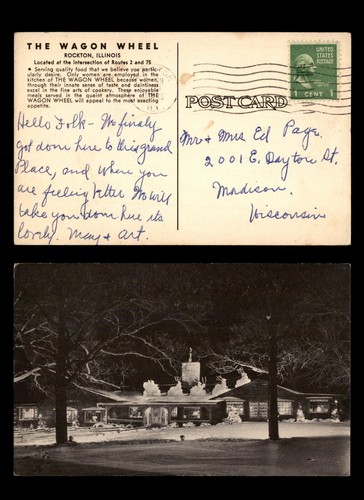 THE WAGON WHEEL
ROCKTON, ILLINOIS
Located at the Intersection of Routes 2 and 75
• Serving quality food that we believe you particu-
larly desire. Only women are employed in the
kitchen of THE WAGON WHEEL because women,
through their innate sense of taste and daintiness
excel in the fine arts of cookery. These enjoyable
meals served in the quaint atmosphere of THE
WAGON WHEEL will appeal to the most exacting
appetites.
Hello Folk - We finally
got down here to this grand
place, and when you
are feeling better We will
take you down here its
lovely. Mary & Art.
UNITED STATES
POSTAGE
1 CENT 1
POST CARD
Mr & Mrs Ed Page
2001 E. Dayton St.
Madison.
Wisconsin